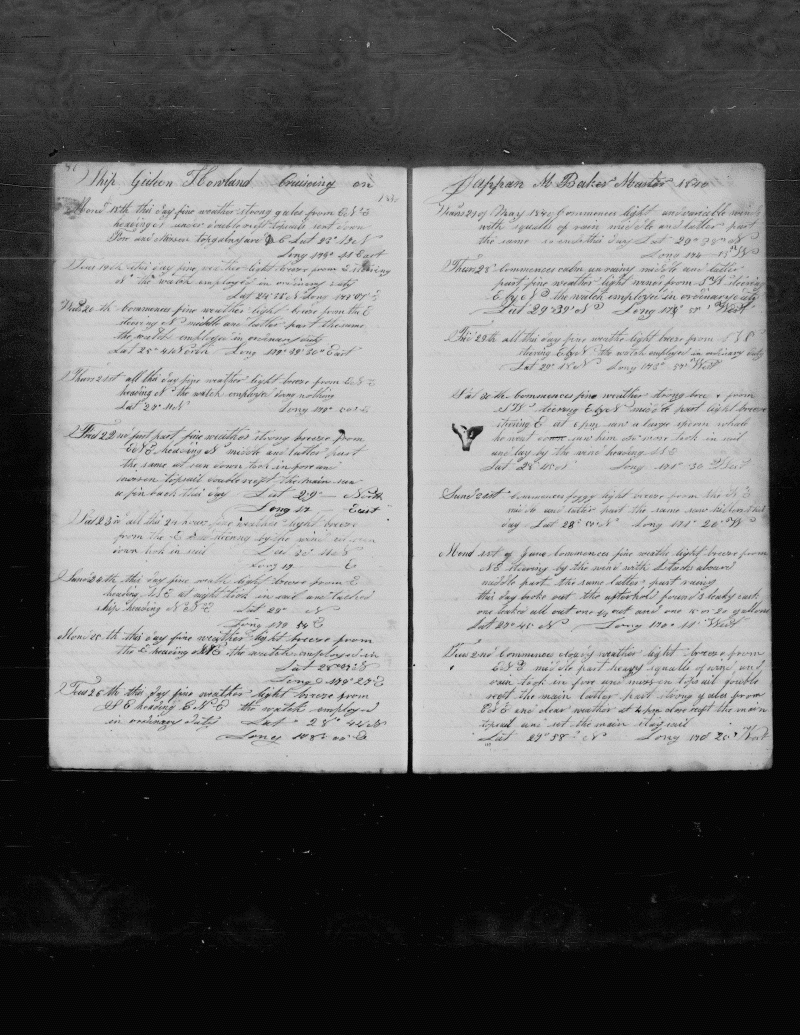 Ship Gideon Howland Cruising on
1840
Mond 18th this day fine weather strong gales from ENE
heading N under double reeft topsails sent down
Fore and mizzen topgalyard Lat 23° N
Long 178° 41 East
Tues 19th this day fine weather light breeze from E steering
N the watch employed in ordinary duty
Lat 24° N Long
Wed 20th Commences fine weather light breeze from the E
steering N middle and latter part the same
the watch employed in ordinary duty
Lat 25° 44 North Long 179° 39 30" East
Thurs 21st all this day fine weather light breeze from ENE
heading N the watch employed doing nothing
Lat 27° N Long E
Fried 22nd first part fine weather strong breeze from
ENE heading N middle and latter part
the same at sun down took in fore and
mizzen topsail double reeft the main saw
a fin back this day Lat 29° North
Long 17 East
Sat 23d all this 24 hours fine weather light breeze
from the E steering by the wind at sun
down took in sail Lat 30° N
Long 17 E
Sund 24th this day fine weath light breeze from E
heading NNE at night took in sail and tacked
ship heading NNE Lat 29° N
Long 179 54 E
Mond 25th this day fine weather light breeze from
the E heading NNE the watch employed in
Lat 28° N
Long 179° 27 E
Tues 26th this day fine weather light breeze from
SE heading ENE the watch employed
in ordinary duty Lat 28° 44 N
Long E
Jappan M Baker Master 1840
27 of May 1840 Commences light and variable winds
with squalls of rain middle and latter part
the same so ends this day Lat 29° N
Long W
Thurs 28 Commences calm and rainy middle and latter
part fine weather light winds from SW steering
E by N the watch employed in ordinary duty
Lat 29° 39' N Long 174° West
Fri 29th all this day fine weather light breeze from SW
steering E by N the watch employed in ordinary duty
Lat 29° 18 N Long 173° West
Sat 30th commences fine weather strong breeze from
NW steering E by N middle part light breeze
steering E at 6 pm saw a large sperm whale
he went down saw him no more took in sail
and lay by the wind heading NNE
Lat 28° N Long 171° 30 West
Sund 31st commences foggy light breeze from the NE
middle and latter part the same saw nothing this
day Lat 28° N Long 171° 20" W
Mond 1st of June Commences fine weather light breeze from
NE steering by the wind with Starboard
middle part the same latter part rainy
this day broke out the afterhold found 3 leaky cask
one leaked all out one 1/2 out and one 15 or 20 gallons
Lat 29° 45 N Long 170° 11" West
Tues 2nd Commences cloudy weather light breeze from
ENE middle part heavy squalls of wind and
rain took in fore and mizzen topsail double
reeft the main latter part strong gales from
and clear weather at 4 pm close reeft the main
topsail and set the main staysail
Lat 29° 58" N Long 170 20" West